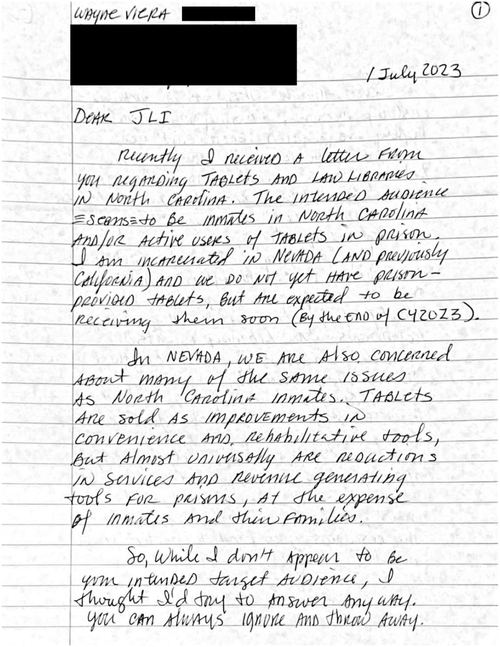 WAYNE VIERA
①
1 July 2023
DEAR JLI
Recently I received a letter from
you regarding TABLETS AND LAW LIBRARIES
in NORTH CAROLINA. The intended AUDIENCE
seems to be inmates in NORTH CAROLINA
AND/OR Active users of TABLETS in prison.
I am incarcerated in NEVADA (AND previously
California) AND we do not yet HAVE prison-
provided tablets, but are expected to be
receiving them soon (By the end of CY2023).
In NEVADA, we are Also concerned
About many of the same issues
AS North CAROLINA inmates. TABLETS
are sold as improvements in
convenience and rehabilitative tools,
but Almost universally are reductions
in services and revenue generating
tools for prisons, at the expense
of inmates and their families.
So, while I don't appear to be
your intended target AUDIENCE, I
thought I'd try to answer any way.
You can always ignore and throw away.